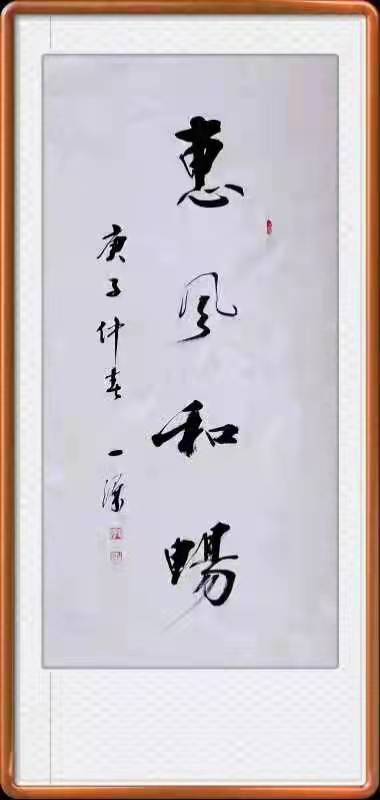 惠風和暢
庚子仲春 一